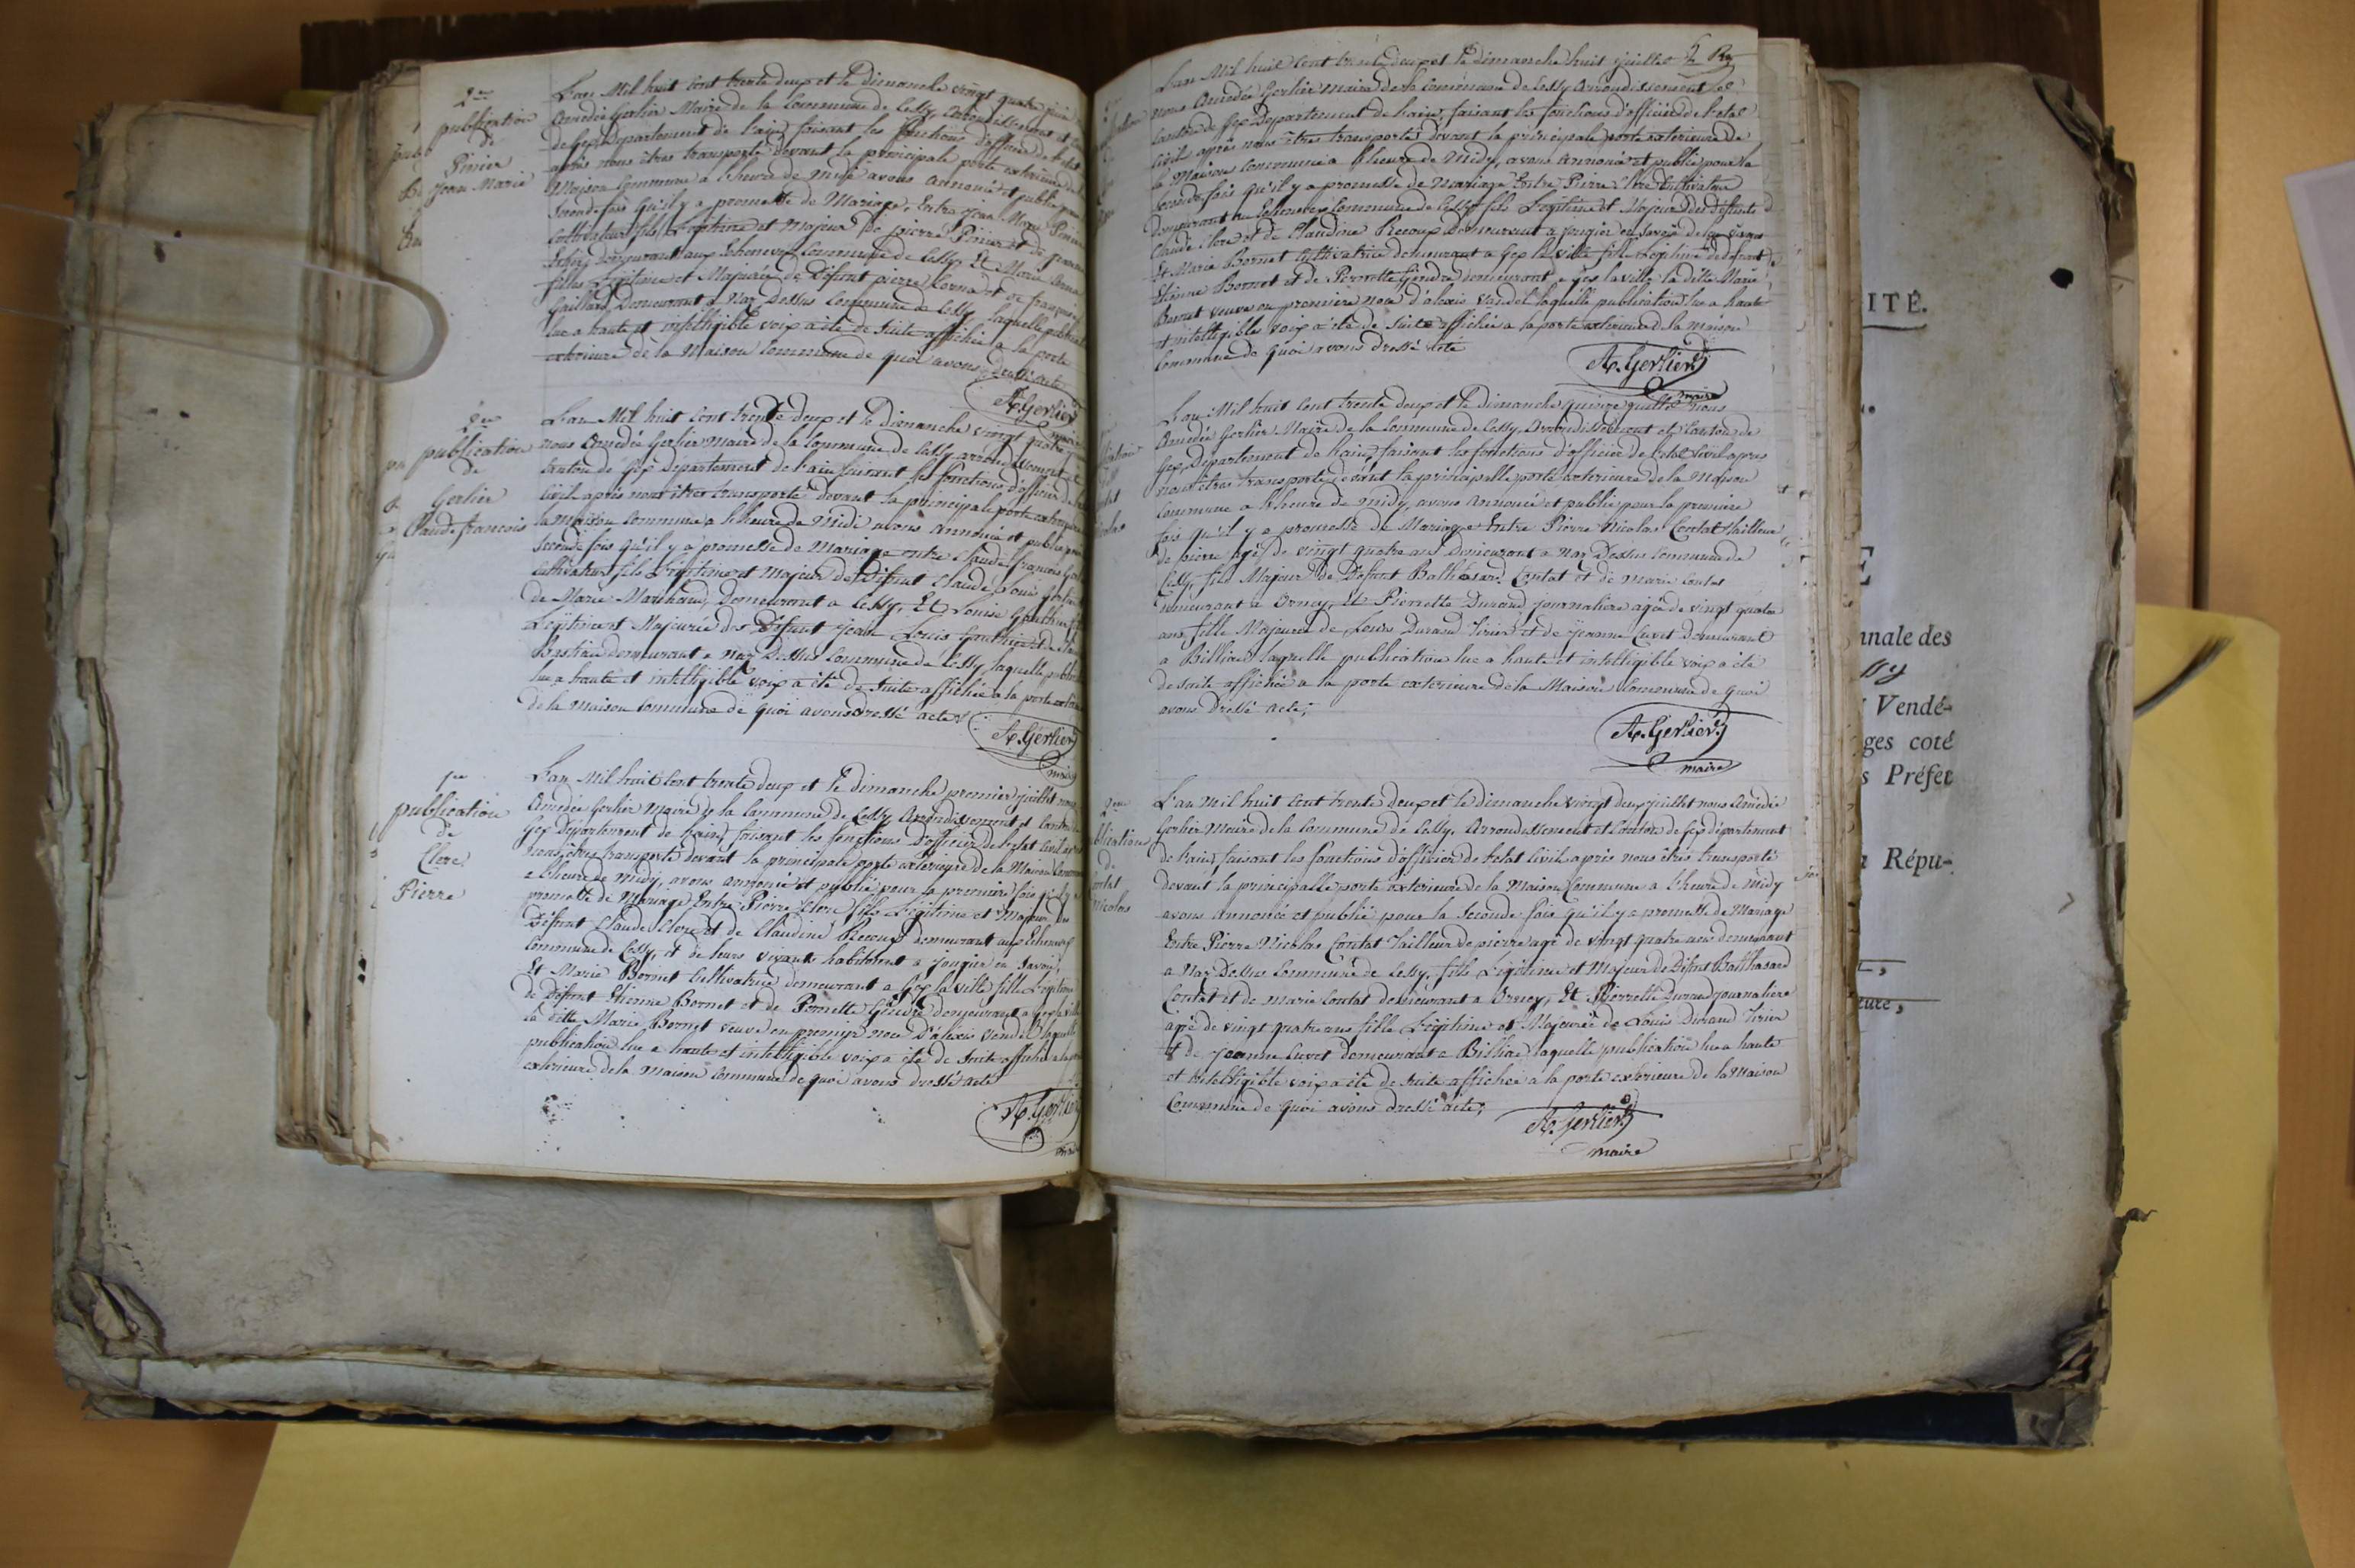 2me
publication
de
Pinier
Jean Marie
L'an Mil huit Cent trente deux et le dimanche vingt quatre juin
Amedée Gerlier Maire de la Commune de Cessy, Arrondissement et
de Gex Département de l'ain, faisant les fonctions d'officier de l'etat
après nous êtres transporté devant la principale porte exterieure de
Maison Commune a l'heure de midi avons annoncé et publié pour
seconde fois qu'il y a promesse de Mariage, Entre Jean Marie Pinier
Cultivateur fils Légitime et majeur de pierre Pinier et de
demeurant aux Echenevex Commune de Cessy, Et Marie
fille Légitime et Majeure de Défunt pierre et de françoise
Gaillard, Demeurant a Naz Dessus Commune de Cessy laquelle publication
lue a haute et intelligible voix a été de suite affichée a la porte
exterieure de la Maison Commune de quoi avons dressé acte
A. Gerlier
maire
2me
publication
de
Gerlier
Claude françois
L'an Mil huit Cent trente deux et le dimanche vingt quatre
nous Amedée Gerlier Maire de la Commune de Cessy arrondissement et
Canton de Gex Département de l'ain faisant les fonctions d'officier de
Civil après nous êtres transporté devant la principale porte exterieure
la Maison Commune a l'heure de Midi avons annoncé et publié pour
seconde fois qu'il y a promesse de Mariage entre Claude françois
Cultivateur fils Légitime et majeur de Défunt Claude Louis Gerlier
de Marie Marchand, Demeurant a Cessy, Et Louise Gauthier
Légitime et Majeurée de Défunt Jean Louis Gauthier et de
Bastian demeurant a Naz Dessus Commune de Cessy, laquelle publication
lue a haute et intelligible voix a été de suite affichée a la porte
de la Maison Commune de quoi avons dressé acte
A. Gerlier
maire
1re
publication
de
Clerc
Pierre
L'an Mil huit Cent trente deux et le dimanche premier juillet nous
Amedée Gerlier Maire de la Commune de Cessy Arrondissement et Canton de
Gex Département de l'ain, faisant les fonctions d'officier de l'etat Civil après
nous êtres transporté devant la principale porte exterieure de la Maison Commune
a l'heure de midy, avons annoncé et publié pour la premiere fois qu'il y a
promesse de Mariage Entre Pierre Clerc fils Légitime et Majeur de
Défunt Claude Clerc et de Claudine Recoux demeurant aux Echenevex
Commune de Cessy, et de leurs vivants habitants a jongier en Savoie,
Et Marie Bornet Cultivatrice demeurant a Gex la ville fille Légitime
de Défunt Etienne Bornet et de Pernette Gendre demeurant a Gex la ville
la ditte Marie Bornet veuve en premier noce D'alexis Vandel laquelle
publication lue a haute et intelligible voix a été de suite affichée a la porte
exterieure de la Maison Commune de quoi avons dressé acte
A. Gerlier
maire
L'an Mil huit Cent trente deux et le dimanche huit juillet
nous Amedée Gerlier maire de la Commune de Cessy Arrondissement et
Canton de Gex Département de l'ain, faisant les fonctions d'officier de l'etat
Civil après nous êtres transporté devant la principale porte exterieure de
la Maison Commune a l'heure de Midy, avons annoncé et publié pour la
seconde fois qu'il y a promesse de Mariage Entre Pierre Clerc Cultivateur
demeurant au Echenevex Commune de Cessy fils Légitime et Majeur des Défunts
Claude Clerc et de Claudine Recoux Demeurant a jongier en Savoie de leurs vivant
Et Marie Bornet Cultivatrice demeurant a Gex la ville fille Légitime de Défunt
Etienne Bornet et de Pernette Gendre demeurant a Gex la ville la ditte Marie
Bornet veuve en premiere noce d'alexis Vandel laquelle publication lue a haute
et intelligible voix a été de suite affichée a la porte exterieure de la maison
Commune de quoi avons dressé acte
A. Gerlier
maire
L'an Mil huit Cent trente deux et le dimanche quinze juillet nous
Amedée Gerlier Maire de la Commune de Cessy, Arrondissement et Canton de
Gex, Département de l'ain, faisant les fonctions d'officier de l'etat Civil après
nous êtres transporté devant la principalle porte exterieure de la Maison
Commune a l'heure de midy, avons annoncé et publié pour la premiere
fois qu'il y a promesse de Mariage Entre Pierre Nicolas Contat Tailleur
de pierre agé de vingt quatre ans Demeurant a Naz Dessus Commune de
Cessy, fils Majeur de Défunt Balthasard Contat et de marie Contat
demeurant a Ornex, Et Pierrette Durand journaliere agée de vingt quatre
ans fille Majeure de Louis Durand Tirier et de jeanne Cuvet Demeurant
a Billiat laquelle publication lue a haute et intelligible voix a été
de suite affichée a la porte exterieure de la Maison Commune de quoi
avons dressé acte;
A. Gerlier
maire
2me
blication
de
Contat
Nicolas
L'an mil huit Cent trente deux et le dimanche vingt deux juillet nous Amedée
Gerlier Maire de la Commune de Cessy, Arrondissement et Canton de Gex département
de l'ain, faisant les fonctions d'officier de l'etat Civil après nous êtres transporté
devant la principalle porte exterieure de la Maison Commune a l'heure de midy
avons annoncé et publié pour la seconde fois qu'il y a promesse de Mariage
Entre Pierre Nicolas Contat Tailleur de pierre agé de vingt quatre ans demeurant
a Naz Dessus Commune de Cessy, fils Légitime et Majeur de Défunt Balthasard
Contat et de marie Contat demeurant a Ornex, Et Pierrette Durand journaliere
agée de vingt quatre ans fille Légitime et Majeurée de Louis Durand Tirier
et de jeanne Cuvet demeurant a Billiat, laquelle publication lue a haute
et intelligible voix a été de suite affichée a la porte exterieure de la Maison
Commune de quoi avons dressé acte;
A. Gerlier
maire
ITÉ.
nnale des
Vendé-
ges coté
s Préfet
Répu-